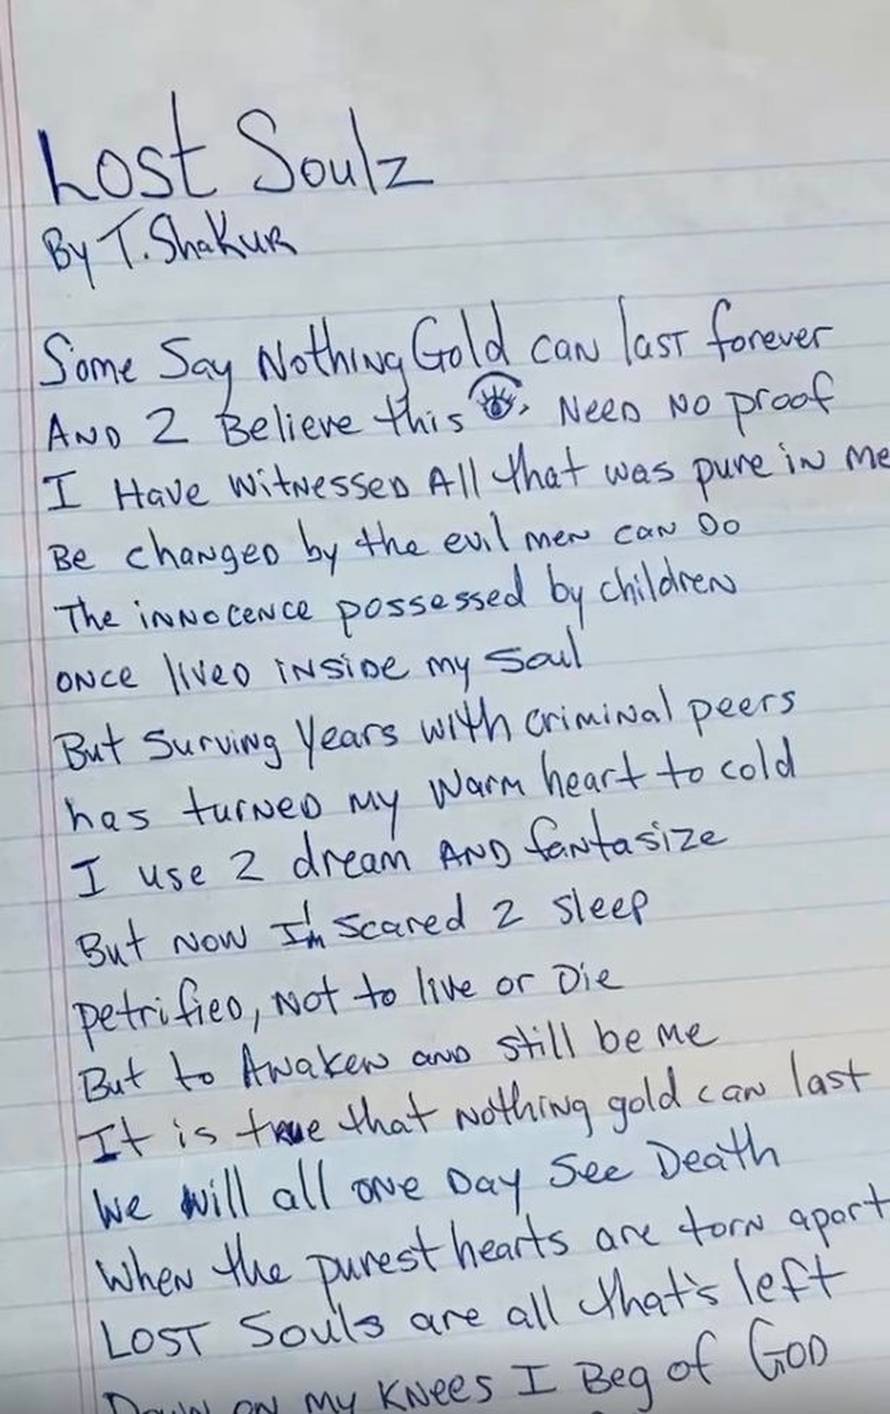 Lost Soulz
By T. Shakur
Some Say Nothing Gold can last forever
AND 2 Believe this 👁, Need No proof
I Have witnessed All that was pure in me
Be changed by the evil men can Do
The innocence possessed by children
once lived inside my soul
But surving years with criminal peers
has turned my warm heart to cold
I use 2 dream AND fantasize
But now I'm scared 2 sleep
petrified, not to live or Die
But to Awaken and still be me
It is true that nothing gold can last
We will all one Day See Death
When the purest hearts are torn apart
LOST Souls are all that's left
Down on my knees I Beg of God